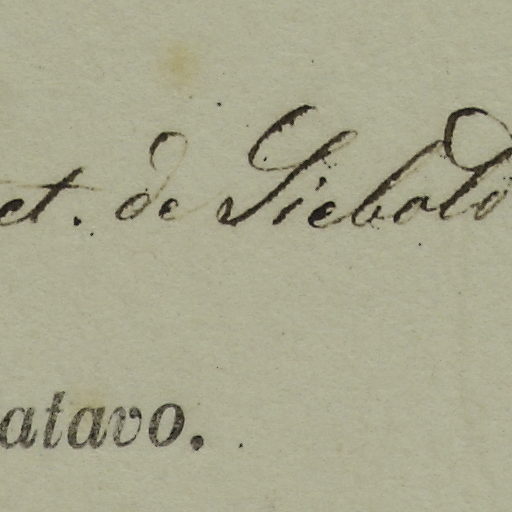 ct. de Siebold
atavo.